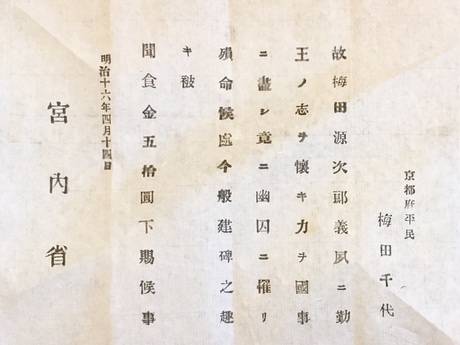 京都府平民
梅田千代
故梅田源次郎義夙ニ勤
王ノ志ヲ懷キ力ヲ國事
ニ盡シ竟ニ幽囚ニ罹リ
殞命候處今般建碑之趣
キ被
聞食金五拾圓下賜候事
明治十六年四月十四日
宮内省